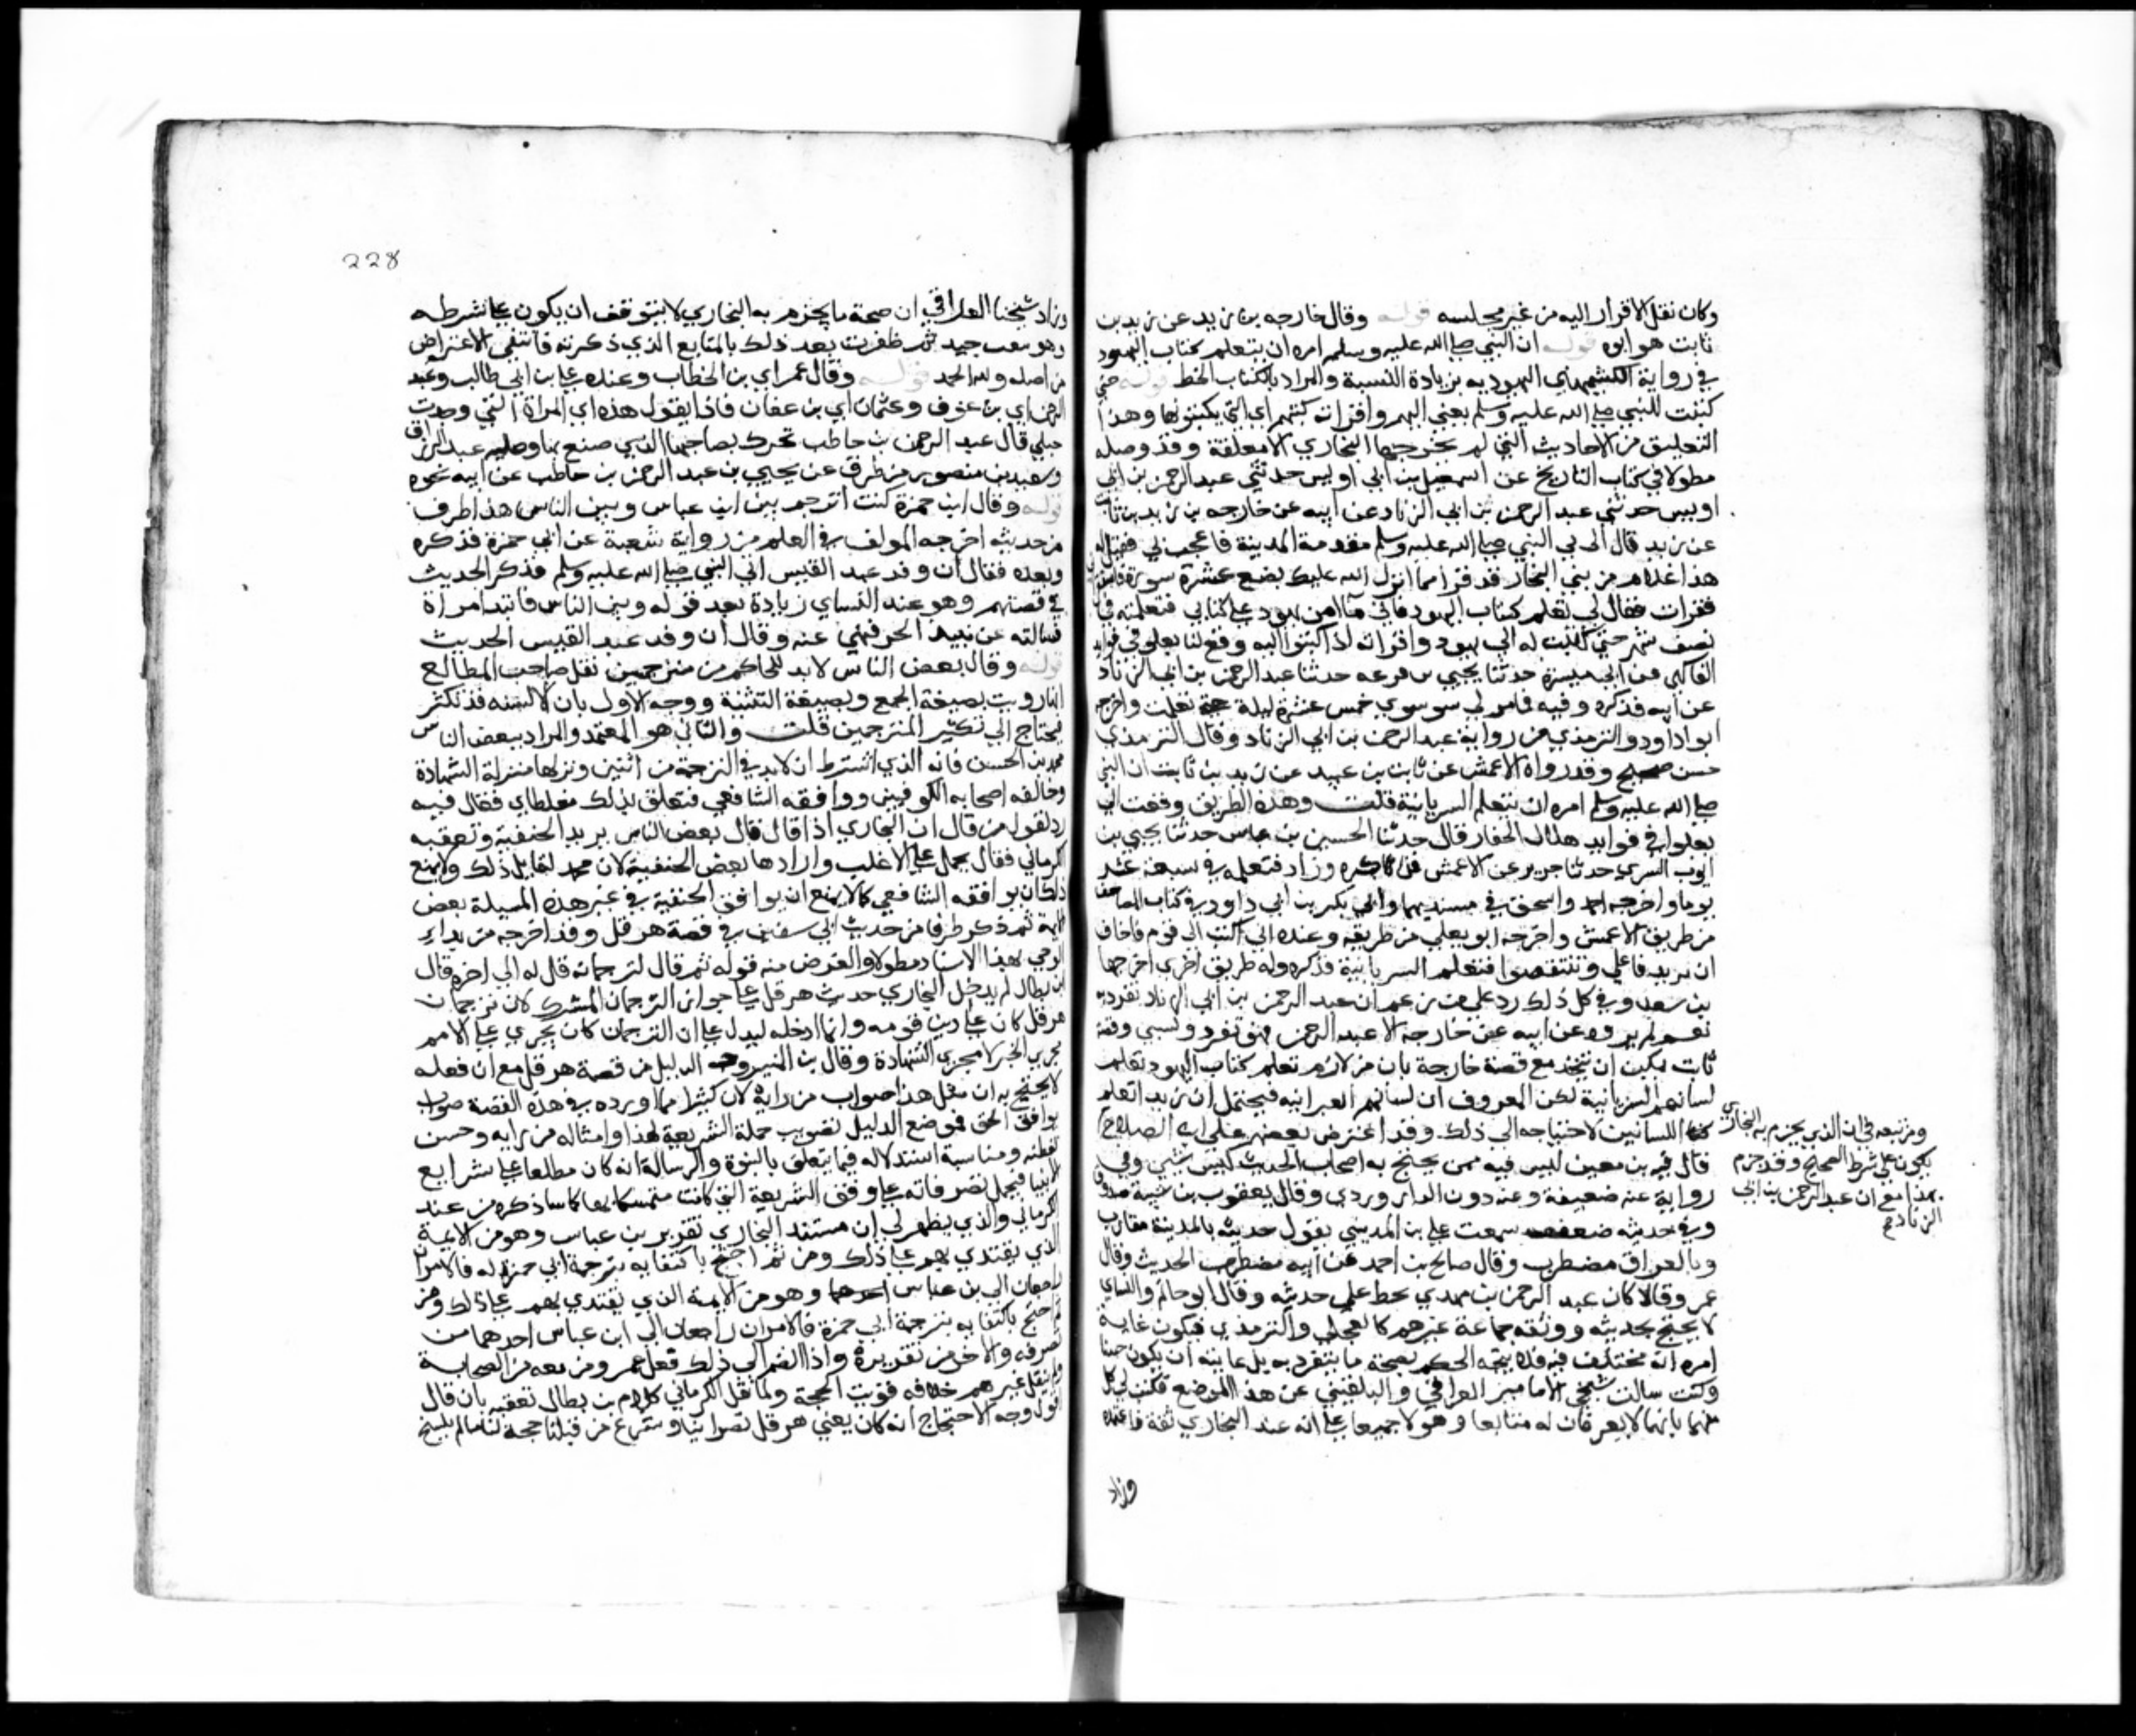 وكان نقل الاقرار اليه من غير مجلسه قوله وقال خارجه بن زيد عن زيد بن
ثابت هو ابوه قوله ان النبي صلى الله عليه وسلم امره ان يتعلم كتاب اليهود
في رواية الكشميهني اليهوديه بزيادة النسبة والمراد بالكتاب الخط قوله حتي
كتبت للنبي صلى الله عليه وسلم يعني اليهم واقراته كتبهم اي التي يكتبونها وهذا
التعليق من الاحاديث التي لم يخرجها البخاري الا معلقة وقد وصله
مطولا في كتاب التاريخ عن اسمعيل بن ابي اويس حدثني عبد الرحمن بن ابي
اويس حدثني عبد الرحمن بن ابي الزناد عن ابيه عن خارجه بن زيد بن ثابت
عن زيد قال اتي بي النبي صلى الله عليه وسلم مقدمه المدينة فاعجب بي فقيل له
هذا غلام من بني النجار قد قرا مما انزل الله عليك بضع عشرة سورة
فقرات فقال لي تعلم كتاب اليهود فاني ما امن يهود علي كتابي فتعلمته في
نصف شهر حتي كتبت له الي يهود واقراته اذا كتبوا اليه ووقع لنا بعلو في فوايد
الفاكهي عن ابن ابي ميسرة حدثنا يحيي بن قزعه حدثنا عبد الرحمن بن ابي الزناد
عن ابيه فذكره وفيه فما مر بي سوي خمس عشرة ليلة حتي تعلمته واخرجه
ابو داود والترمذي من رواية عبد الرحمن بن ابي الزناد وقال الترمذي
حسن صحيح وقد رواه الاعمش عن ثابت بن عبيد عن زيد بن ثابت ان النبي
صلى الله عليه وسلم امره ان يتعلم السريانية قلت وهذه الطريق وقعت لي
بعلو في فوايد هلال الحفار قال حدثنا الحسين بن عياش حدثنا يحيي بن
ايوب السري حدثنا جرير عن الاعمش فذكره وزاد فتعلمه في سبعة عشر
يوما واخرجه احمد واسحق في مسنديهما وابي بكر بن ابي داود في كتاب المصاحف
من طريق الاعمش واخرجه ابو يعلي من طريقه وعنده اني اكتب الي قوم فاخاف
ان يزيدوا علي وينتقصوا فتعلم السريانية فذكره وله طريق اخري اخرجها
بن سعد وفي كل ذلك رد علي من زعم ان عبد الرحمن بن ابي الزناد تفرد به
نعم لم يروه عن ابيه عن خارجه الا عبد الرحمن فهو تفرد نسبي وقصة
ثابت يمكن ان تتحد مع قصة خارجة بان من لازم تعلم كتاب اليهود تعلم
لسانهم السريانية لكن المعروف ان لسانهم العبرانيه فيحتمل ان زيدا تعلم
اللسانين لاحتياجه الي ذلك وقد اعترض بعضهم علي ابن الصلاح
قال فيه بن معين ليس فيه ممن يحتج به اصحاب الحديث ليس بشي وفي
رواية عنه ضعيف وعنه دون الداروردي وقال يعقوب بن شيبة صدوق
وفي حديثه ضعف سمعت علي بن المديني يقول حديثه بالمدينة مقارب
وبالعراق مضطرب وقال صالح بن احمد عن ابيه مضطرب الحديث وقال
عمرو وقالا كان عبد الرحمن بن مهدي يخط علي حديثه وقال ابو حاتم والنساي
لا يحتج بحديثه ووثقه جماعة غيرهم كالعجلي والترمذي فيكون غاية
امره انه مختلف فيه فلا يتجه الحكم بصحة ما ينفرد به بل غايته ان يكون حسنا
وكنت سالت شيخي الامامين العراقي والبلقيني عن هذا الموضع فكتب لي كل
منهما بانهما لا يعرفان له متابعا وعولا جميعا علي انه عند البخاري ثقة فاعتمده
وزاد
ومن تبعه في ان الذي يجزم به البخاري
يكون علي شرط الصحيح وقد جزم
بهذا مع ان عبد الرحمن بن ابي
الزناد
228
وزاد شيخنا العراقي ان صحة ما يجزم به البخاري لا يتوقف ان يكون علي شرطه
وهو تعقب جيد ثم ظفرت بعد ذلك بالمتابع الذي ذكرته فانتفي الاعتراض
من اصله ولله الحمد قوله وقال عمر اي بن الخطاب وعنده علي بن ابي طالب وعبد
الرحمن اي بن عوف وعثمان اي بن عفان ماذا يقول هذه اي المراة التي وجدت
حبلي قال عبد الرحمن بن حاطب تخبرك بصاحبها الذي صنع بها وصله عبد الرزاق
وسعيد بن منصور من طرق عن يحيي بن عبد الرحمن بن حاطب عن ابيه نحوه
قوله وقال ابو حمزة كنت اترجم بين ابن عباس وبين الناس هذا طرف
من حديث اخرجه المولف في العلم من رواية شعبة عن ابي حمزة فذكره
وبعده فقال ان وفد عبد القيس اتي النبي صلى الله عليه وسلم فذكر الحديث
في قصتهم وهو عند النساي زيادة بعد قوله وبين الناس فاتته امراة
فسالته عن نبيذ الجر فنهي عنه وقال ان وفد عبد القيس الحديث
قوله وقال بعض الناس لا بد للحاكم من مترجمين نقل صاحب المطالع
انها رويت بصيغة الجمع وبصيغة التثنية ووجه الاول بان الالسنه قد تكثر
فيحتاج الي تكثير المترجمين قلت والثاني هو المعتمد والمراد ببعض الناس
محمد بن الحسن فانه الذي اشترط ان لا بد في الترجمة من اثنين ونزلها منزلة الشهادة
وخالفه اصحابه الكوفيين ووافقه الشافعي فتعلق بذلك مغلطاي فقال فيه
رد لقول من قال ان البخاري اذا قال قال بعض الناس يريد الحنفية وتعقبه
الكرماني فقال يحمل علي الاغلب واراد هنا بعض الحنفية لان محمد لقايل ذلك ولا يمنع
ذلك ان يوافقه الشافعي كما لا يمنع ان يوافق الحنفية في غير هذه المسيلة بعض
الايمة ثم ذكر طرفا من حديث ابي سفين في قصة هرقل وقد اخرجه من بداء
الوحي بهذا الاسناد مطولا والغرض منه قوله ثم قال لترجمانه قل له الي اخره قال
ابن بطال لم يدخل البخاري حديث هرقل علي جواز الترجمان المشرك لان ترجمان
هرقل كان علي دين قومه وانما ادخله ليدل علي ان الترجمان كان يجري علي الامم
مجري الخبر لا مجري الشهادة وقال بن المنير وجه الدليل من قصة هرقل مع ان فعله
لا يحتج به ان مثل هذا صواب من رايه لان كثيرا مما اورده في هذه القصة صواب
يوافق الحق فموضع الدليل تصويب حملة الشريعة لهذا وامثاله من رايه وحسن
تفطنه ومناسبة استدلاله فيما يتعلق بالنبوة والرسالة انه كان مطلعا علي شرايع
الانبيا فيحمل تصرفاته علي وفق الشريعة التي كانت متمسكا بها كما ساذكره من عند
الكرماني والذي يظهر لي ان مستند البخاري تقرير بن عباس وهو من الايمة
الذي يقتدي بهم علي ذلك ومن ثم احتج باكتفايه بترجمة ابي حمزة له فالامران
راجعان الي بن عباس احدهما وهو من الايمة الذي يقتدي بهم علي ذلك ومن
ثم احتج باكتفايه بترجمة ابي حمزة فالامران راجعان الي ابن عباس احدهما من
تصرفه والاخر من تقريره واذا انضم الي ذلك فعل عمر ومن معه من الصحابة
ولم ينقل عن غيرهم خلافه قويت الحجة ولما نقل الكرماني كلام بن بطال تعقبه بان قال
اقول وجه الاحتجاج انه كان يعني هرقل نصرانيا وشرع من قبلنا حجة لنا ما لم ينسخ